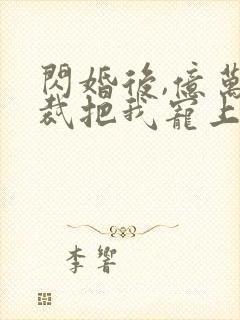 閃婚後,億萬
裁把我寵上
李響